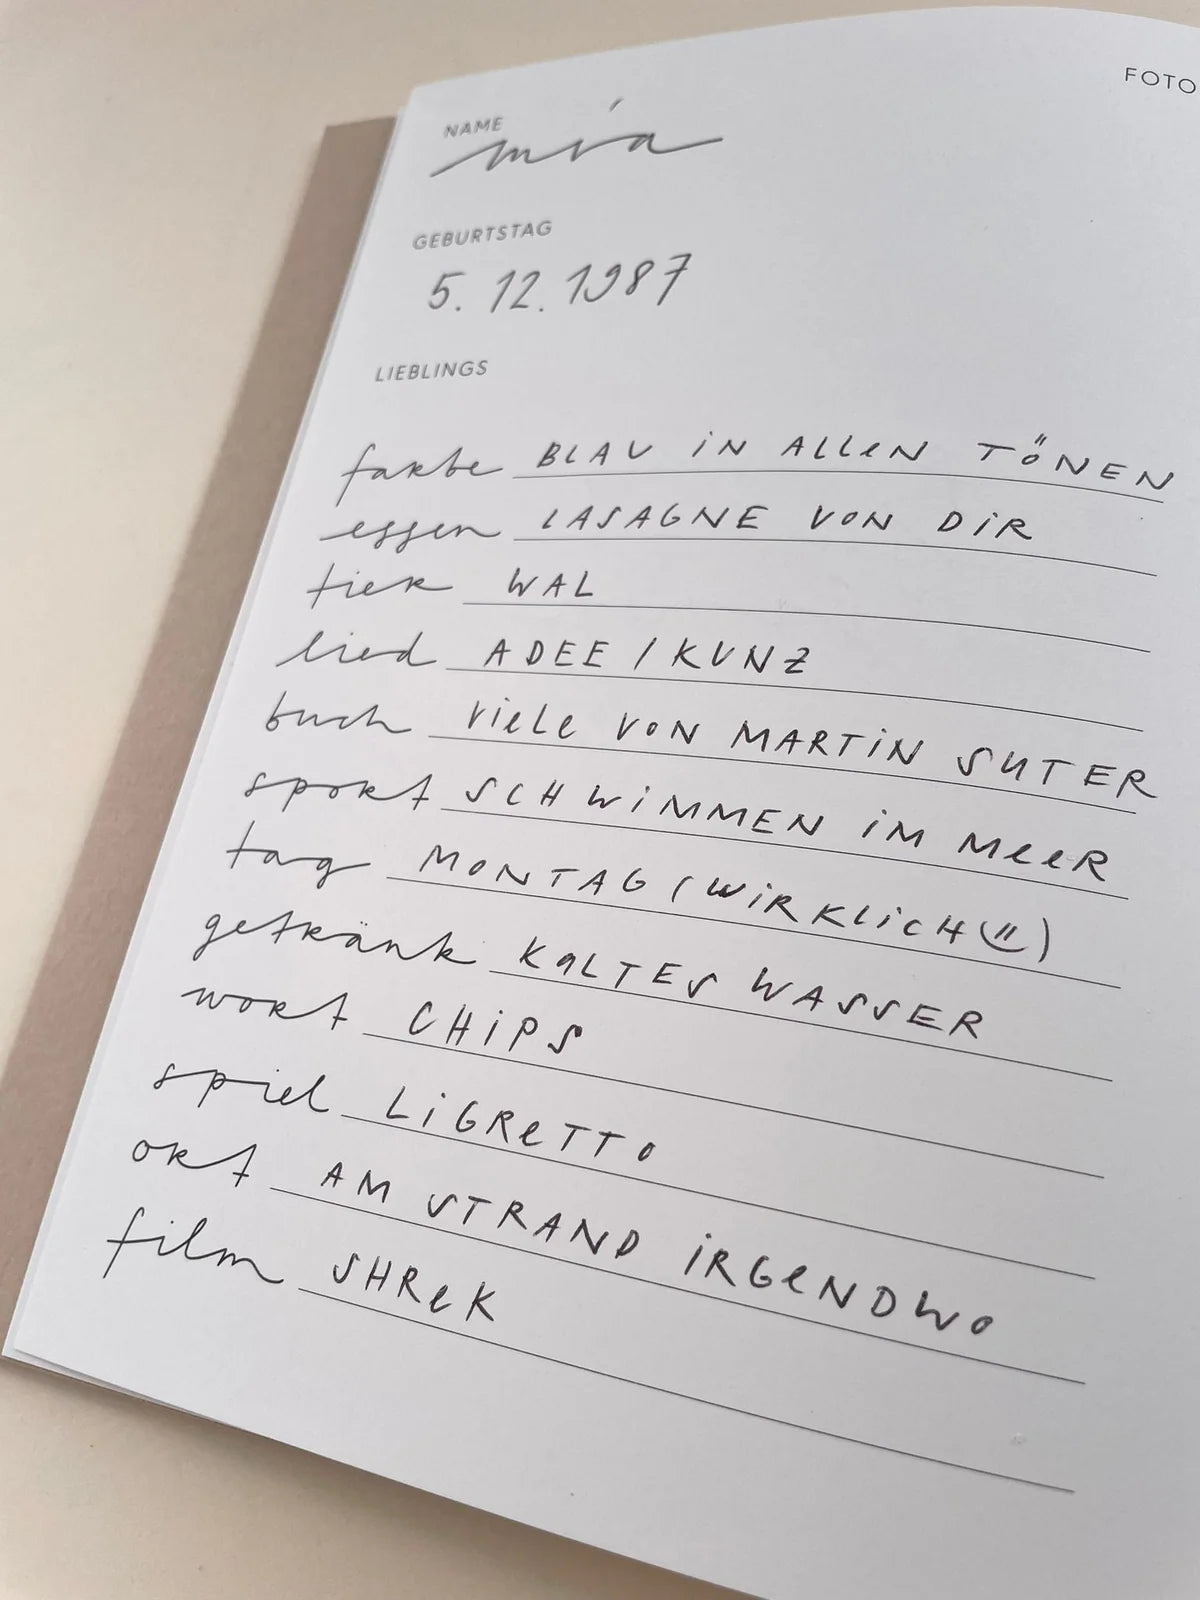 FOTO
NAME
mia
GEBURTSTAG
5. 12. 1987
LIEBLINGS
farbe BLAU IN ALLEN TÖNEN
essen LASAGNE VON DIR
tier WAL
lied ADEE / KUNZ
buch VIELE VON MARTIN SUTER
sport SCHWIMMEN IM MEER
tag MONTAG (WIRKLICH ü)
getränk KALTES WASSER
wort CHIPS
spiel LIGRETTO
ort AM STRAND IRGENDWO
film SHREK